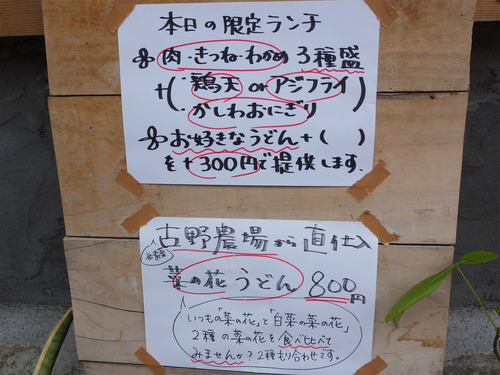 本日の限定ランチ
肉・きつね・わかめ 3種盛
+(・鶏天 or アジフライ
・かしわおにぎり)
お好きなうどん+( )
を+300円で提供します。
古野農場から直仕入
菜の花うどん 800円
いつもの「菜の花」と「白菜の菜の花」
2種の菜の花を食べ比べて
みませんか?2種もり合わせです。